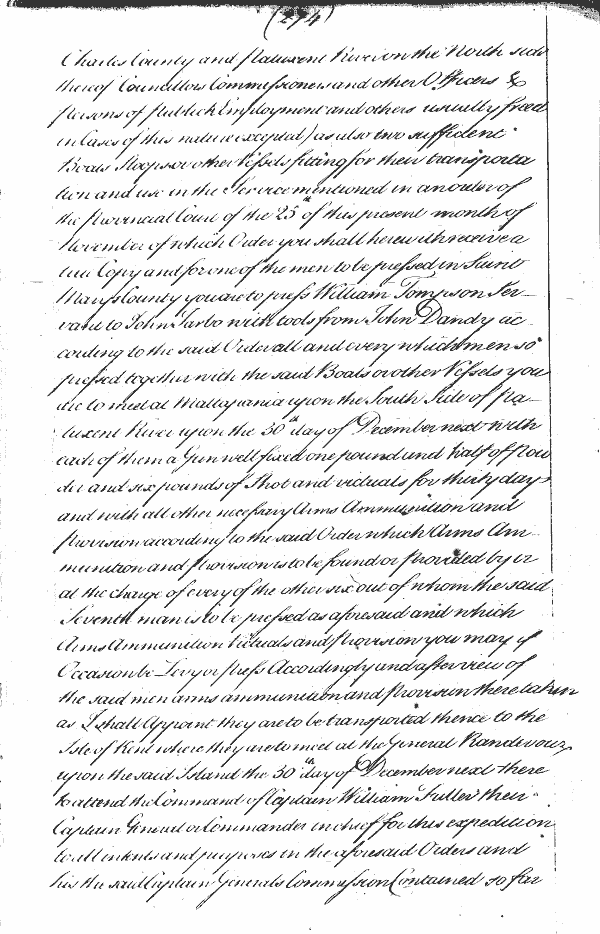 (274)
Charles County and Patuxent River on the North side
thereof Councillors Commissioners and other Officers &
persons of Publick Employment and others usually freed
in Cases of this nature excepted) as also two sufficient
Boats Sloops or other Vessels fitting for their transporta
tion and use in the Service mentioned in an order of
the Provincial Court of the 25th of this present month of
November of which Order you shall herewith receive a
true Copy and for one of the men to be pressed in Saint
Marys County you are to press William Tompson Ser-
vant to John Jarbo with tools from John Dandy ac-
cording to the said Order all and every which men so
pressed together with the said Boats or other Vessels you
are to meet at Mattapania upon the South Side of Pa-
tuxent River upon the 30th day of December next with
each of them a Gun well fixed one pound and half of Pow
der and six pounds of Shot and victuals for thirty days
and with all other necessary Arms Ammunition and
Provision according to the said Order which Arms Am
munition and Provision is to be found or provided by or
at the charge of every of the other six out of whom the said
Seventh man is to be pressed as aforesaid and which
Arms Ammunition Victuals and Provision you may if
Occasion be Levy or press Accordingly and after view of
the said men arms ammunition and Provision there taken
as I shall Appoint they are to be transported thence to the
Isle of Kent where they are to meet at the General Randevouz
upon the said Island the 30th day of December next there
to attend the Command of Captain William Fuller their
Captain General or Commander in chief for this expedition
to all intents and purposes in the aforesaid Orders and
his the said Captain Generals Commission Contained so far